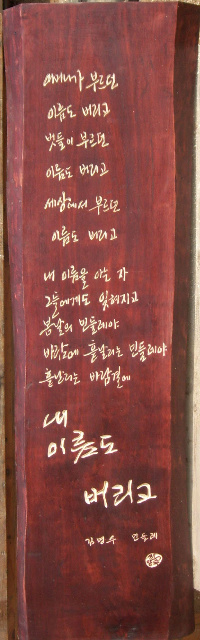 어매가 부르던
이름도 버리고
벗들이 부르던
이름도 버리고
세상에서 부르던
이름도 버리고
내 이름을 아는 자
그들에게도 잊혀지고
봄날의 민들레야
바람에 흩날리는 민들레야
흩날리는 바람결에
내
이름도
버리고
김명수 민들레